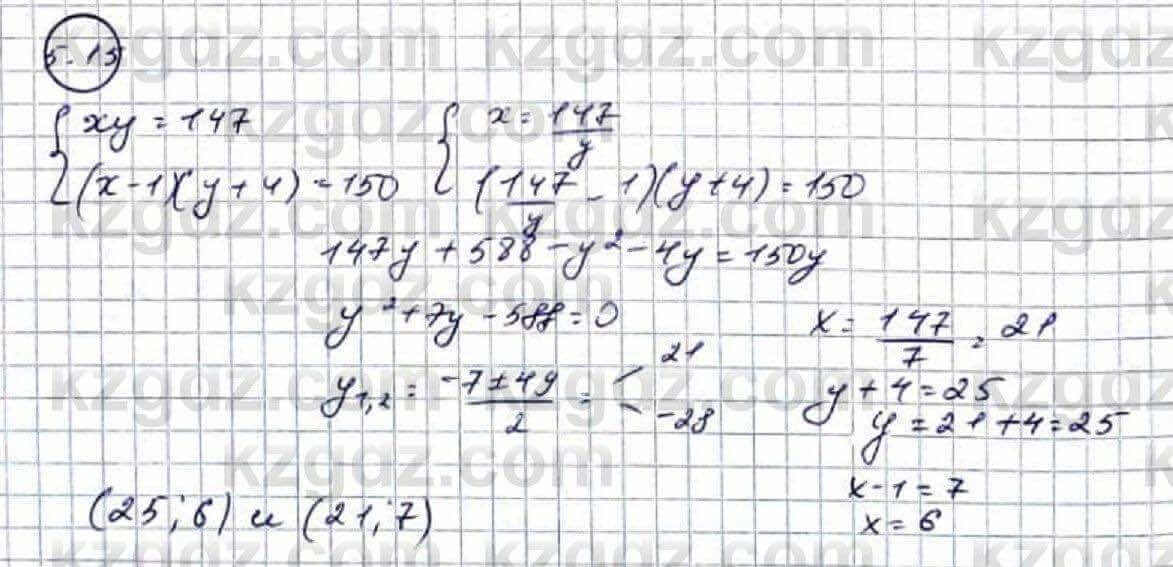 5.13
{ xy = 147
(x-1)(y+4) = 150
{ x = 147/y
(147/y - 1)(y+4) = 150
147y + 588 - y² - 4y = 150y
y² + 7y - 588 = 0
y1,2 = (-7 ± 49)/2 = < 21
-28
x = 147/7 = 21
y + 4 = 25
y = 21 + 4 = 25
x - 1 = 7
x = 6
(25; 6) и (21; 7)
kzgdz.com